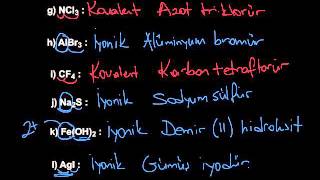 g) NCl3 : Kovalent Azot triklorür
h) AlBr3 : İyonik Alüminyum bromür
ı) CF4 : Kovalent Karbon tetraflorür
j) Na2S : İyonik Sodyum sülfür
2+ k) Fe(OH)2 : İyonik Demir (II) hidroksit
l) AgI : İyonik Gümüş iyodür